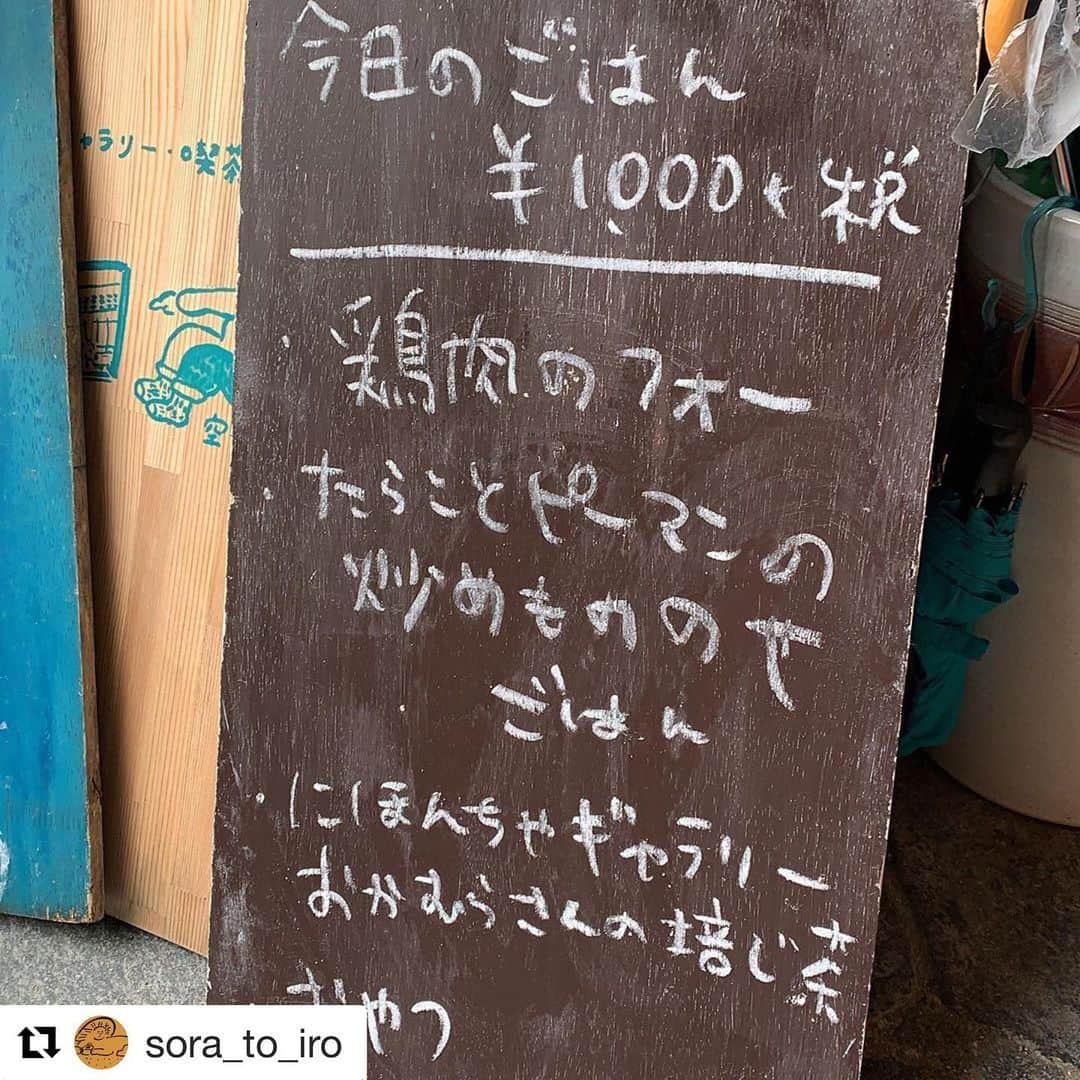 今日のごはん
¥1,000+税
・鶏肉のフォー
・たらことピーマンの
炒めもののせ
ごはん
・にほんちゃギャラリー
おかむらさんの培じ茶
おやつ
ャラリー・喫茶
空
sora_to_iro